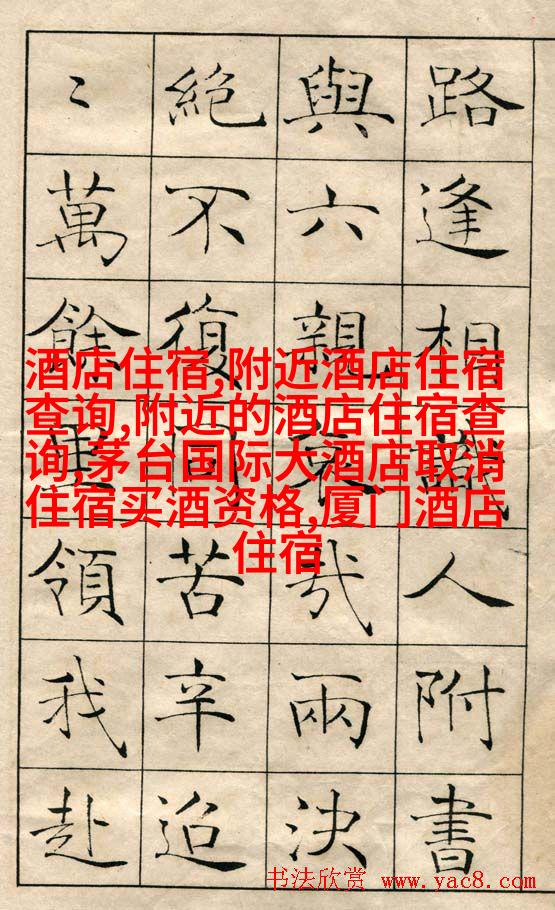 路逢相識人附書
與六親哀哉兩決
絕不復同苦辛迢
〻萬餘里領我赴
酒店住宿,附近酒店住宿
查询,附近的酒店住宿查
询,茅台国际大酒店取消
住宿买酒资格,厦门酒店
住宿
书法欣赏 www.yac8.com